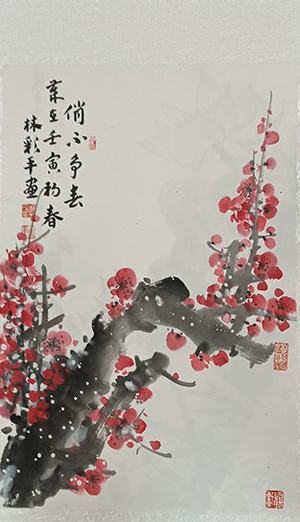 俏不争春
岁在壬寅初春
林彩平画